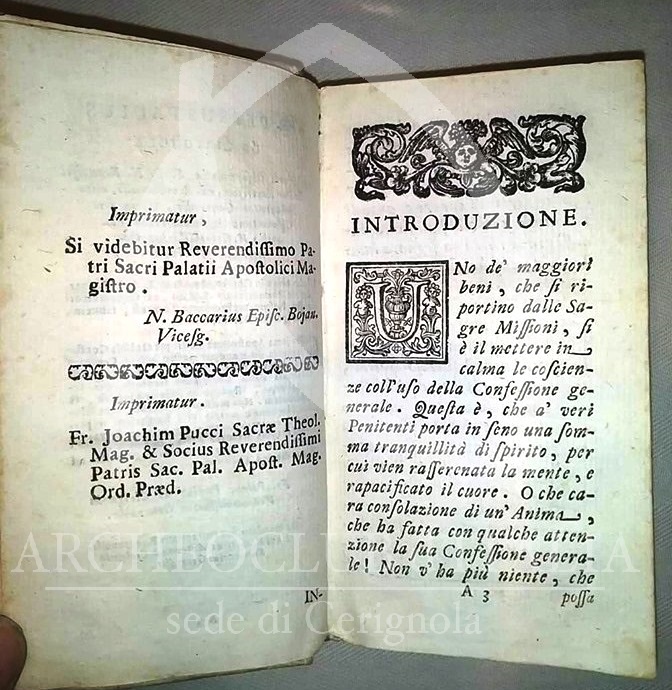 Imprimatur,
Si videbitur Reverendissimo Pa-
tri Sacri Palatii Apostolici Ma-
gistro.
N. Baccarius Episc. Bojan.
Vicesg.
Imprimatur.
Fr. Joachim Pucci Sacræ Theol.
Mag. & Socius Reverendissimi
Patris Sac. Pal. Apost. Mag.
Ord. Præd.
IN-
INTRODUZIONE.
UNo de' maggiori
beni, che si ri-
portino dalle Sa-
gre Missioni, si
è il mettere in
calma le coscien-
ze coll'uso della Confessione ge-
nerale. Questa è, che a' veri
Penitenti porta in seno una som-
ma tranquillità di spirito, per
cui vien rasserenata la mente, e
rapacificato il cuore. O che ca-
ra consolazione di un' Anima,
che ha fatta con qualche atten-
zione la sua Confessione genera-
le! Non v' ha più niente, che
A 3 possa
sede di Cerignola